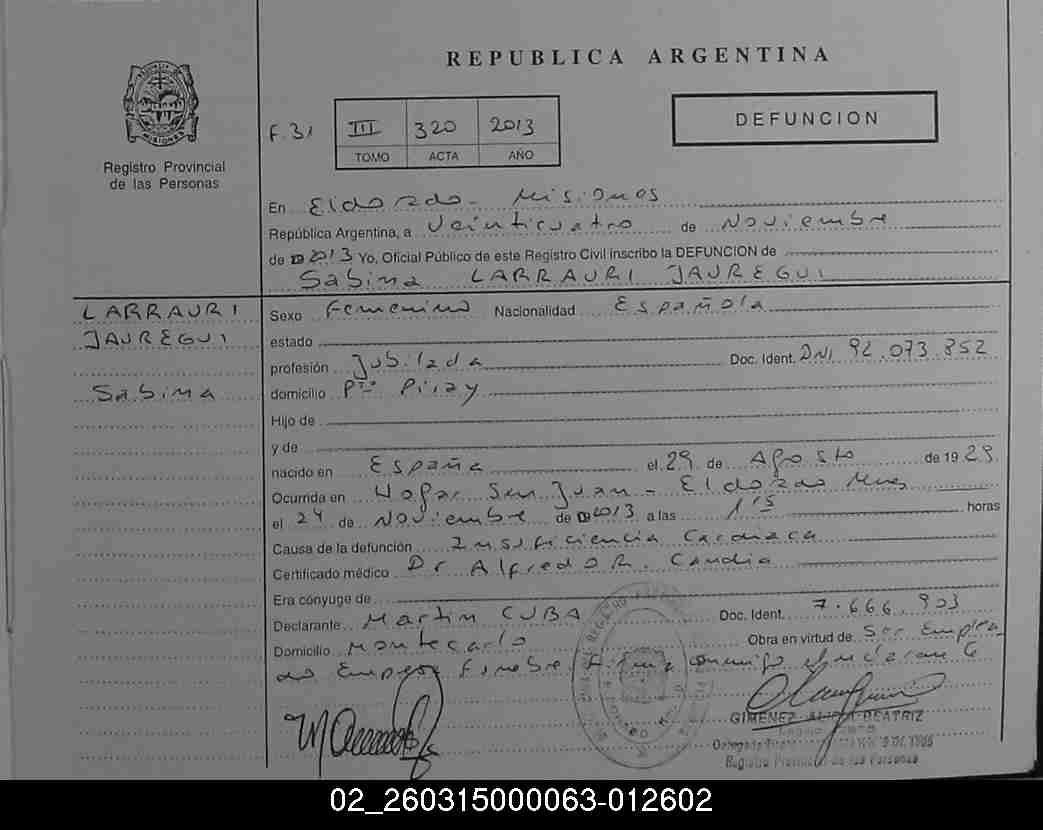 REPUBLICA ARGENTINA
MISIONES
Registro Provincial
de las Personas
F.31
III 320 2013
TOMO ACTA AÑO
DEFUNCION
En Eldorado - Misiones
República Argentina, a Veinticuatro de Noviembre
de 2013 Yo, Oficial Público de este Registro Civil inscribo la DEFUNCION de
Sabina LARRAURI JAUREGUI
LARRAURI
JAUREGUI
Sabina
Sexo Femenino Nacionalidad Española
estado
profesión Jubilada Doc. Ident. DNI 92.073.852
domicilio Pto Piray
Hijo de
y de
nacido en España el 29 de Agosto de 1929
Ocurrida en Hogar San Juan - Eldorado Mnes
el 24 de Noviembre de 2013 a las 1'5 horas
Causa de la defunción Insuficiencia Cardiaca
Certificado médico Dr Alfredo R. Candia
Era cónyuge de
Declarante Martin CUBA Doc. Ident. 7.666.903
Domicilio Montecarlo Obra en virtud de Ser Emplea
do Empresa Funebre Firma conmigo el declarante
GIMENEZ ALICIA BEATRIZ
Registro Provincial de las Personas
02_260315000063-012602